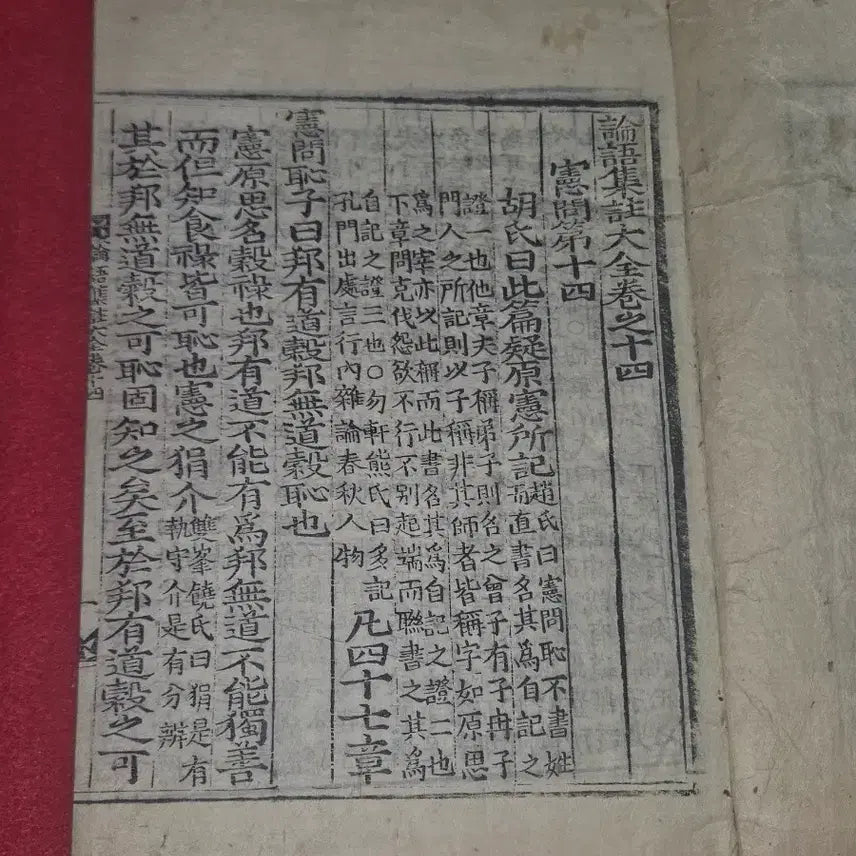 論語集註大全卷之十四
憲問第十四
胡氏曰此篇疑原憲所記
趙氏曰憲問恥不書姓
而直書名其爲自記之
證一也他章夫子稱弟子則名之曾子有子冉子
門人之所記則以子稱非其師者皆稱字如原思
爲之宰亦以此稱而此書名其爲自記之證二也
下章問克伐怨欲不行不别起端而聯書之其爲
自記之證三也○勿軒熊氏曰多記
孔門出處言行內雜論春秋人物
凡四十七章
憲問恥子曰邦有道穀邦無道穀恥也
憲原思名穀祿也邦有道不能有爲邦無道不能獨善
而但知食祿皆可恥也憲之狷介
雙峯饒氏曰狷是有
執守介是有分辨
其於邦無道穀之可恥固知之矣至於邦有道穀之可
論語集註大全卷十四